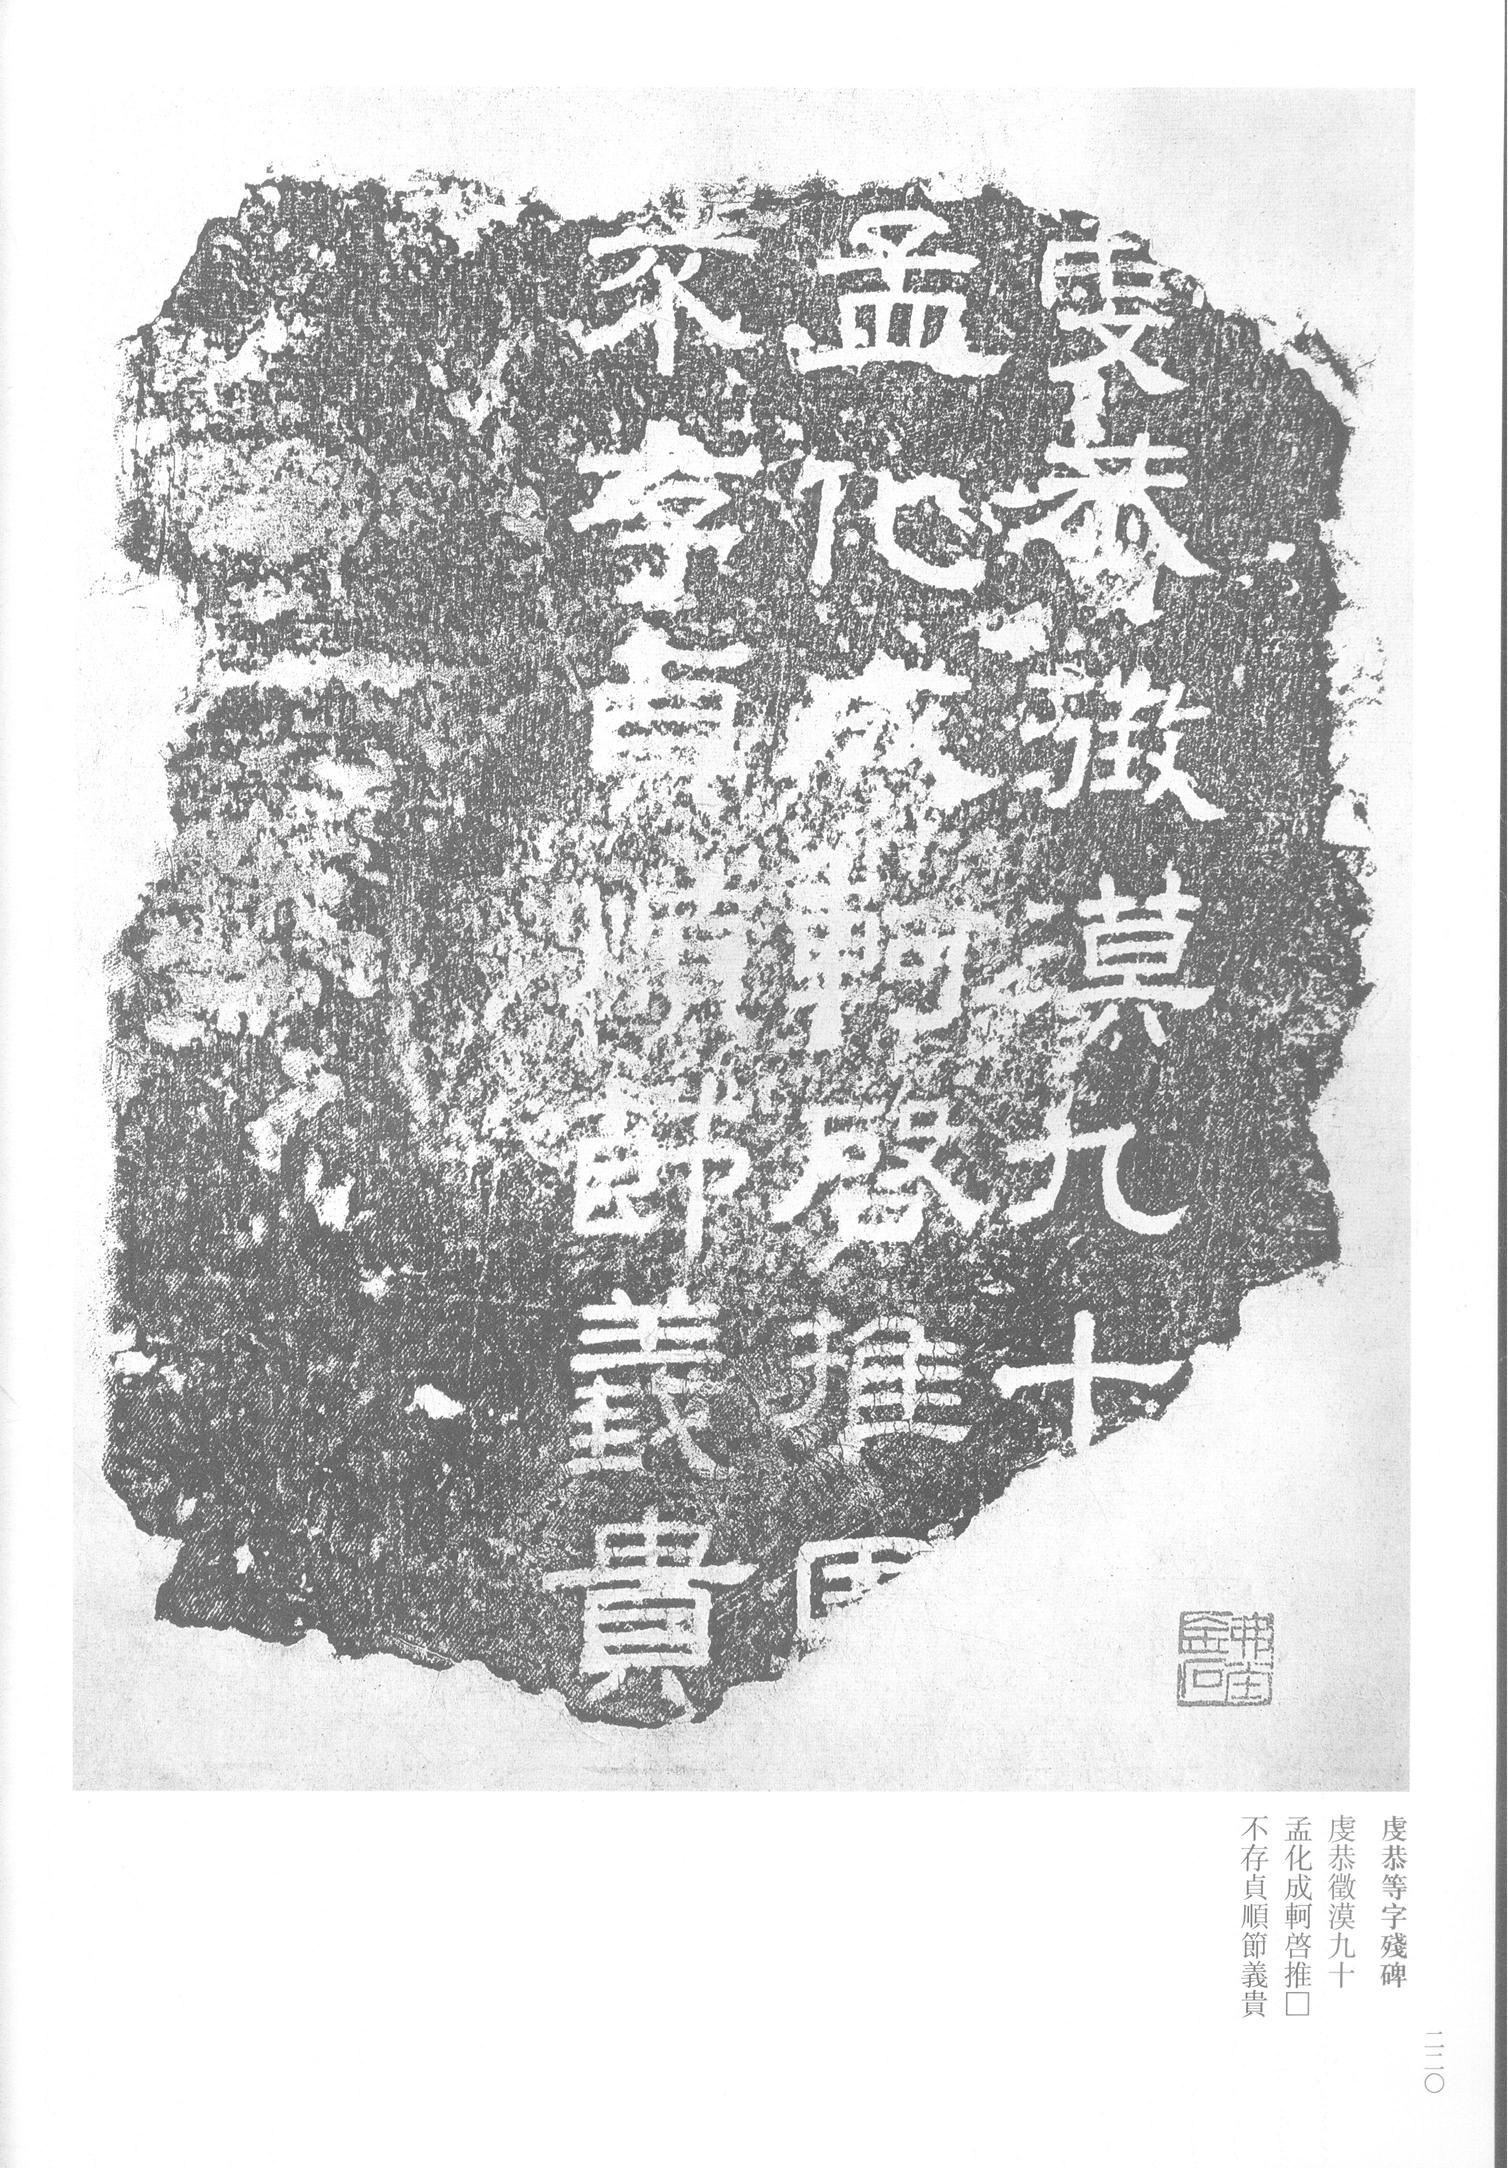 虔恭徵漠九十
孟化成軻啓推
不存貞順節義貴
弗堂
金石
虔恭等字殘碑
虔恭徵漠九十
孟化成軻啓推□
不存貞順節義貴
二二〇